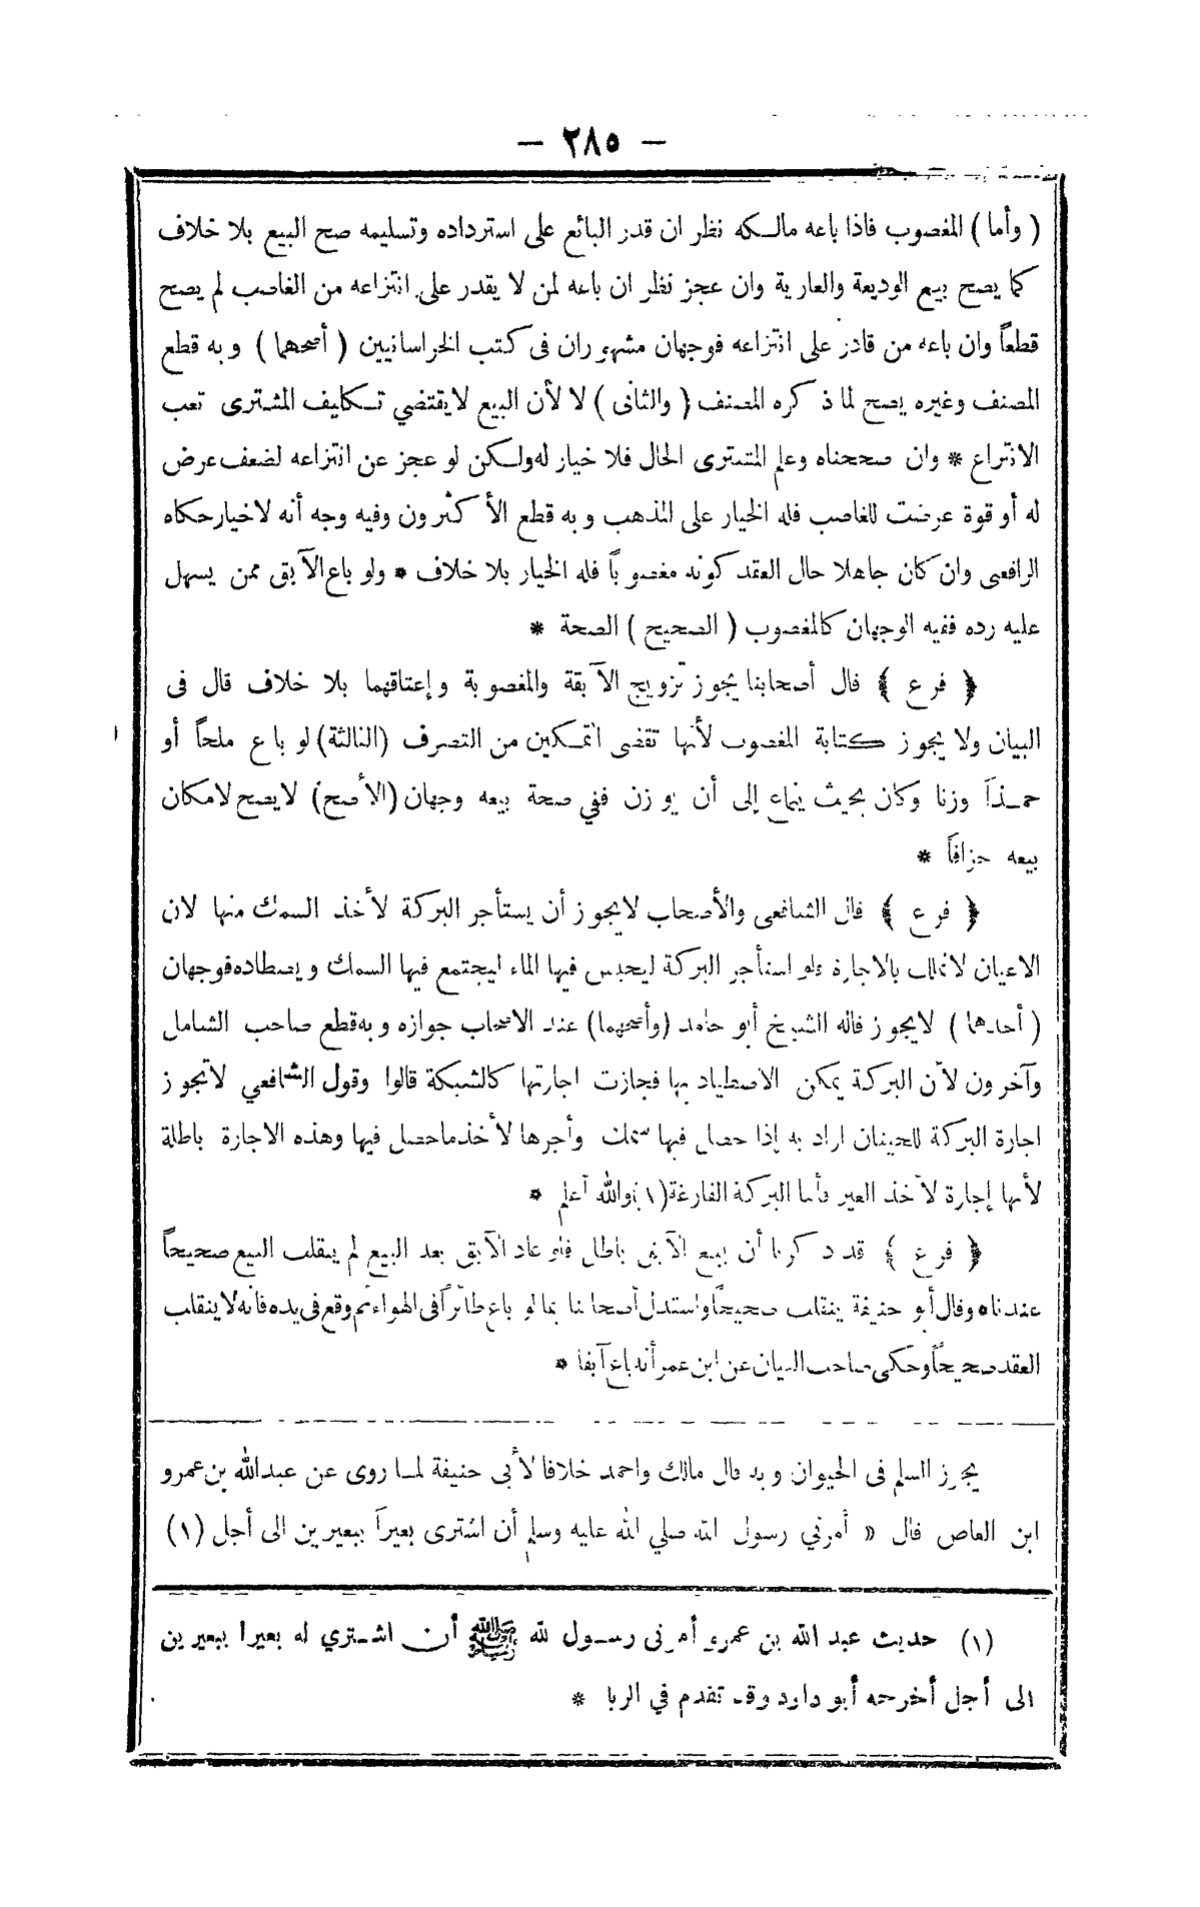 — ٢٨٥ —
( وأما ) المغصوب فاذا باعه مالكه نظر ان قدر البائع على استرداده وتسليمه صح البيع بلا خلاف
كما يصح بيع الوديعة والعارية وان عجز نظر ان باعه لمن لا يقدر على انتزاعه من الغاصب لم يصح
قطعاً وان باعه من قادر على انتزاعه فوجهان مشهوران فى كتب الخراسانيين ( أصحهما ) وبه قطع
المصنف وغيره يصح لما ذكره المصنف ( والثانى ) لا لأن البيع لا يقتضي تكليف المشترى تعب
الانتزاع * وان صححناه وعلم المشترى الحال فلا خيار له ولكن لو عجز عن انتزاعه لضعف عرض
له أو قوة عرضت للغاصب فله الخيار على المذهب وبه قطع الأكثرون وفيه وجه أنه لاخيار حكاه
الرافعى وان كان جاهلا حال العقد كونه مغصوباً فله الخيار بلا خلاف * ولو باع الآبق ممن يسهل
عليه رده ففيه الوجهان كالمغصوب ( الصحيح ) الصحة *
﴿ فرع ﴾ قال أصحابنا يجوز تزويج الآبقة والمغصوبة وإعتاقهما بلا خلاف قال فى
البيان ولا يجوز كتابة المغصوب لأنها تقتضى التمكين من التصرف (الثالثة) لو باع ملحاً أو
حمذاً وزنا وكان بحيث ينماع إلى أن يوزن ففي صحة بيعه وجهان (الأصح) لايصح لامكان
بيعه جزافاً *
﴿ فرع ﴾ قال الشافعى والأصحاب لايجوز أن يستأجر البركة لأخذ السمك منها لان
الاعيان لا تملك بالاجارة فلو استأجر البركة ليحبس فيها الماء ليجتمع فيها السمك ويصطاده فوجهان
( أحدهما ) لايجوز قاله الشيخ أبو حامد (وأصحهما) عند الاصحاب جوازه وبه قطع صاحب الشامل
وآخرون لأن البركة يمكن الاصطياد بها فجازت اجارتها كالشبكة قالوا وقول الشافعي لاتجوز
اجارة البركة للحيتان اراد به إذا حصل فيها سمك وأجرها لأخذ ماحصل فيها وهذه الاجارة باطلة
لأنها إجارة لأخذ العين فأما البركة الفارغة(١)والله أعلم *
﴿ فرع ﴾ قد ذكرنا أن بيع الآبق باطل فلو عاد الآبق بعد البيع لم ينقلب البيع صحيحاً
عندناه وقال أبو حنيفة ينقلب صحيحاً واستدل أصحابنا بما لو باع طائراً فى الهواء ثم وقع فى يده فانه لا ينقلب
العقد صحيحاً وحكى صاحب البيان عن ابن عمر أنه باع آبقا *
يجوز السلم فى الحيوان وبه قال مالك واحمد خلافا لأبى حنيفة لما روى عن عبدالله بن عمرو
ابن العاص قال « أمرني رسول الله صلي الله عليه وسلم أن اشترى بعيراً ببعيرين الى أجل (١)
(١) حديث عبد الله بن عمرو أمرنى رسول لله ﷺ أن اشتري له بعيرا ببعيرين
الى أجل أخرجه أبو داود وقد تقدم في الربا *